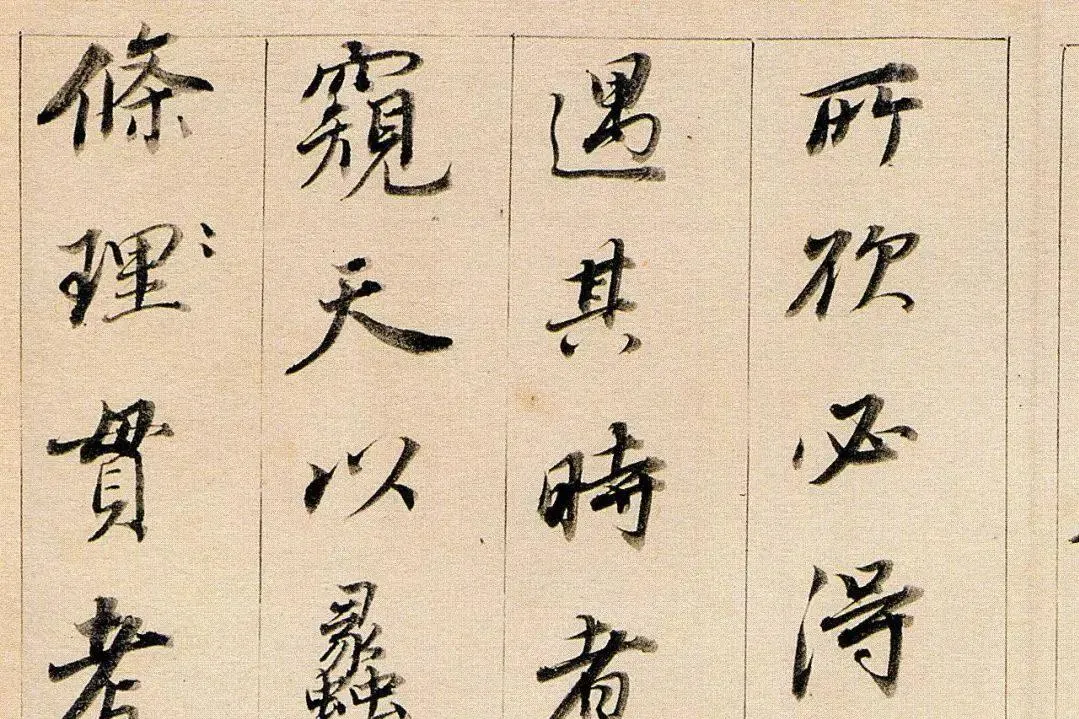 所欲必得
遇其時者
窺天以蠡
條理〻貫考